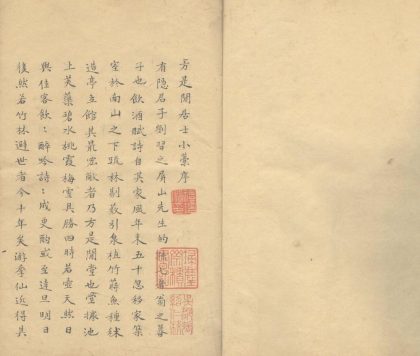 方是閒居士小藁序
有隠居子劉習之屏山先生的孫七者翁之暮
子也飲酒賦詩自其家風年未五十忽移家築
室於南山之下疏林剔薮引泉植竹蒔魚種秫
造亭立館其最宏敞者乃方是閒堂也堂據池
上芙蕖碧水桃霞梅雪具勝四時若壺天然日
與佳客飲：醉吟詩：成更酌或至達旦明日
復然若竹林避世者今十年矣游季仙近得其